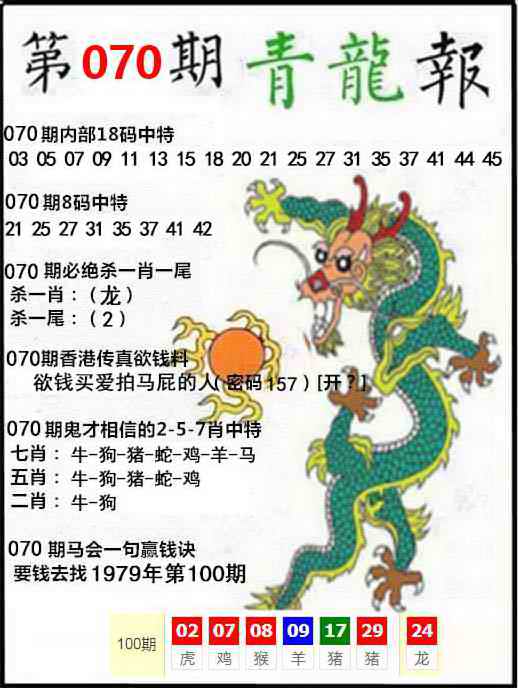 第070期青龍報
070期内部18码中特
03 05 07 09 11 13 15 18 20 21 25 27 31 35 37 41 44 45
070期8码中特
21 25 27 31 35 37 41 42
070 期必绝杀一肖一尾
杀一肖：（龙）
杀一尾：（2）
070期香港传真欲钱料
欲钱买爱拍马屁的人（密码157）[开？]
070期鬼才相信的2-5-7肖中特
七肖：牛-狗-猪-蛇-鸡-羊-马
五肖：牛-狗-猪-蛇-鸡
二肖：牛-狗
070 期马会一句赢钱诀
要钱去找1979年第100期
100期 02 07 08 09 17 29 24
虎 鸡 猴 羊 猪 猪 龙